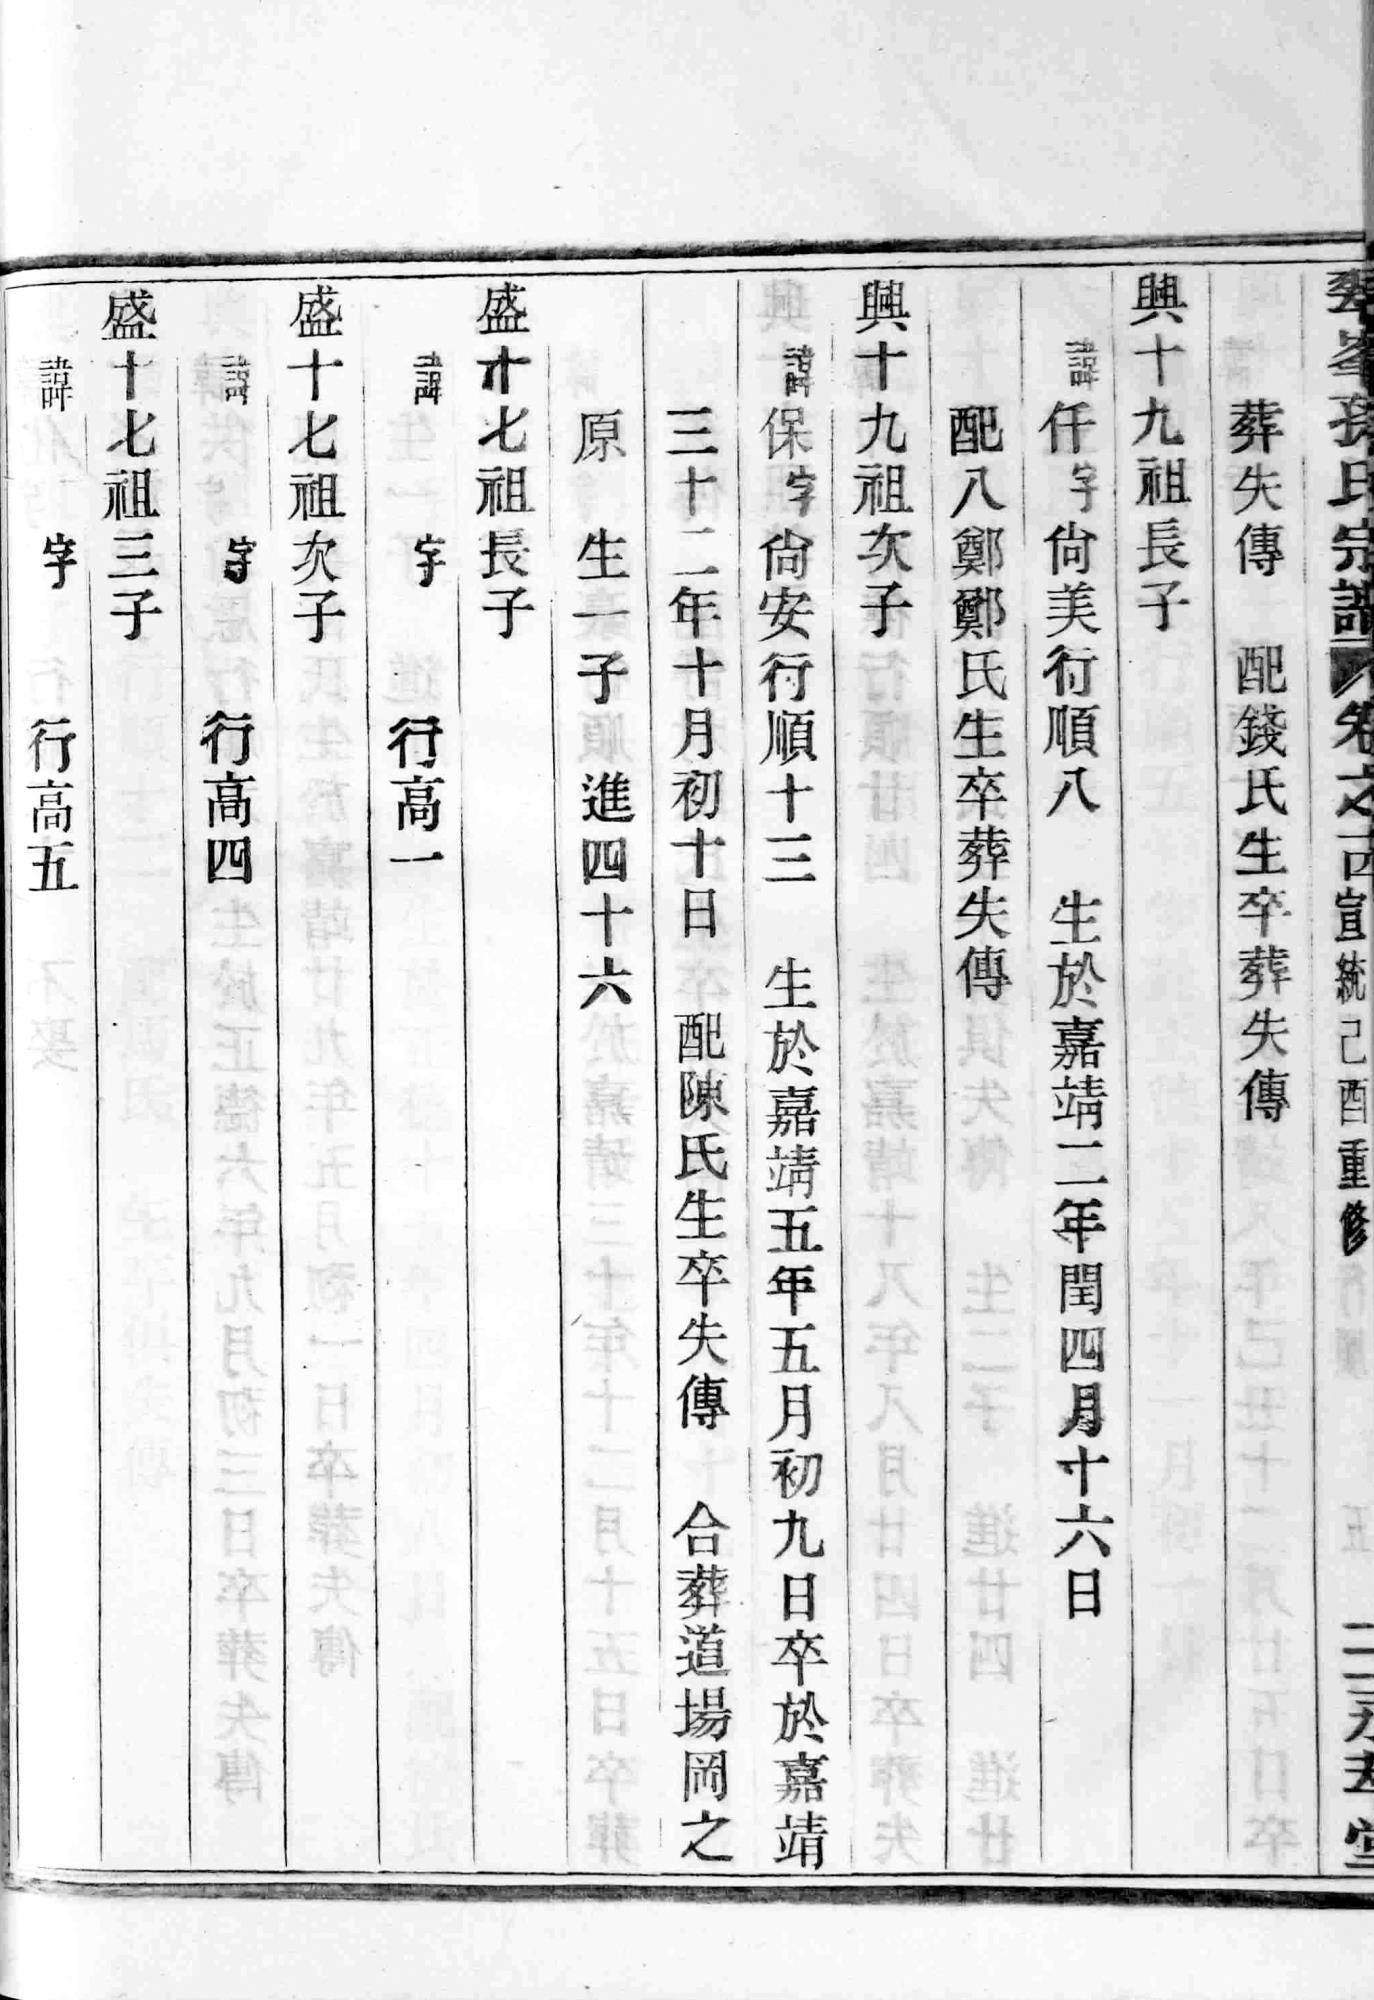 峯孫氏宗譜 卷之 宣統己酉重修 堂
葬失傳 配錢氏生卒葬失傳
興十九祖長子
諱仟字尙美行順八 生於嘉靖二年閏四月十六日
配八鄭鄭氏生卒葬失傳
興十九祖次子
諱保字尙安行順十三 生於嘉靖五年五月初九日卒於嘉靖
三十二年十月初十日 配陳氏生卒失傳 合葬道場岡之
原 生一子順 進四十六
盛十七祖長子
諱 字 行高一
盛十七祖次子
諱 字 行高四
盛十七祖三子
諱 字 行高五